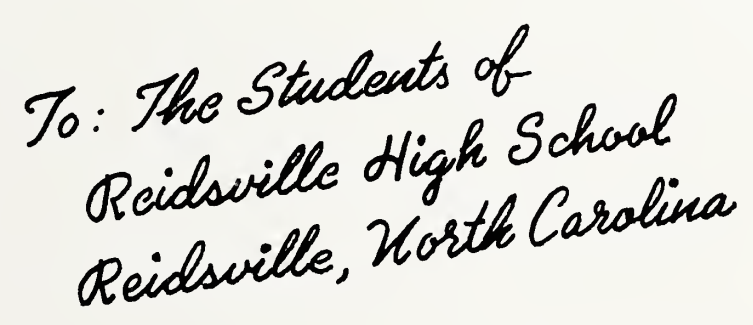 To: The Students of
Reidsville High School
Reidsville, North Carolina